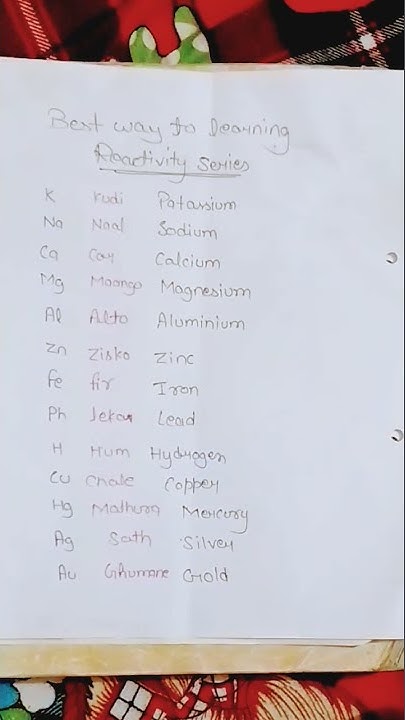 Best way to Learning
Reactivity Series
K Kudi Patassium
Na Naal Sodium
Ca Car Calcium
Mg Maango Magnesium
Al Alto Aluminium
Zn Zisko Zinc
fe fir Iron
Ph Lekar Lead
H Hum Hydrogen
Cu Chale Copper
Hg Mathura Mercury
Ag Sath Silver
Au Ghumane Gold